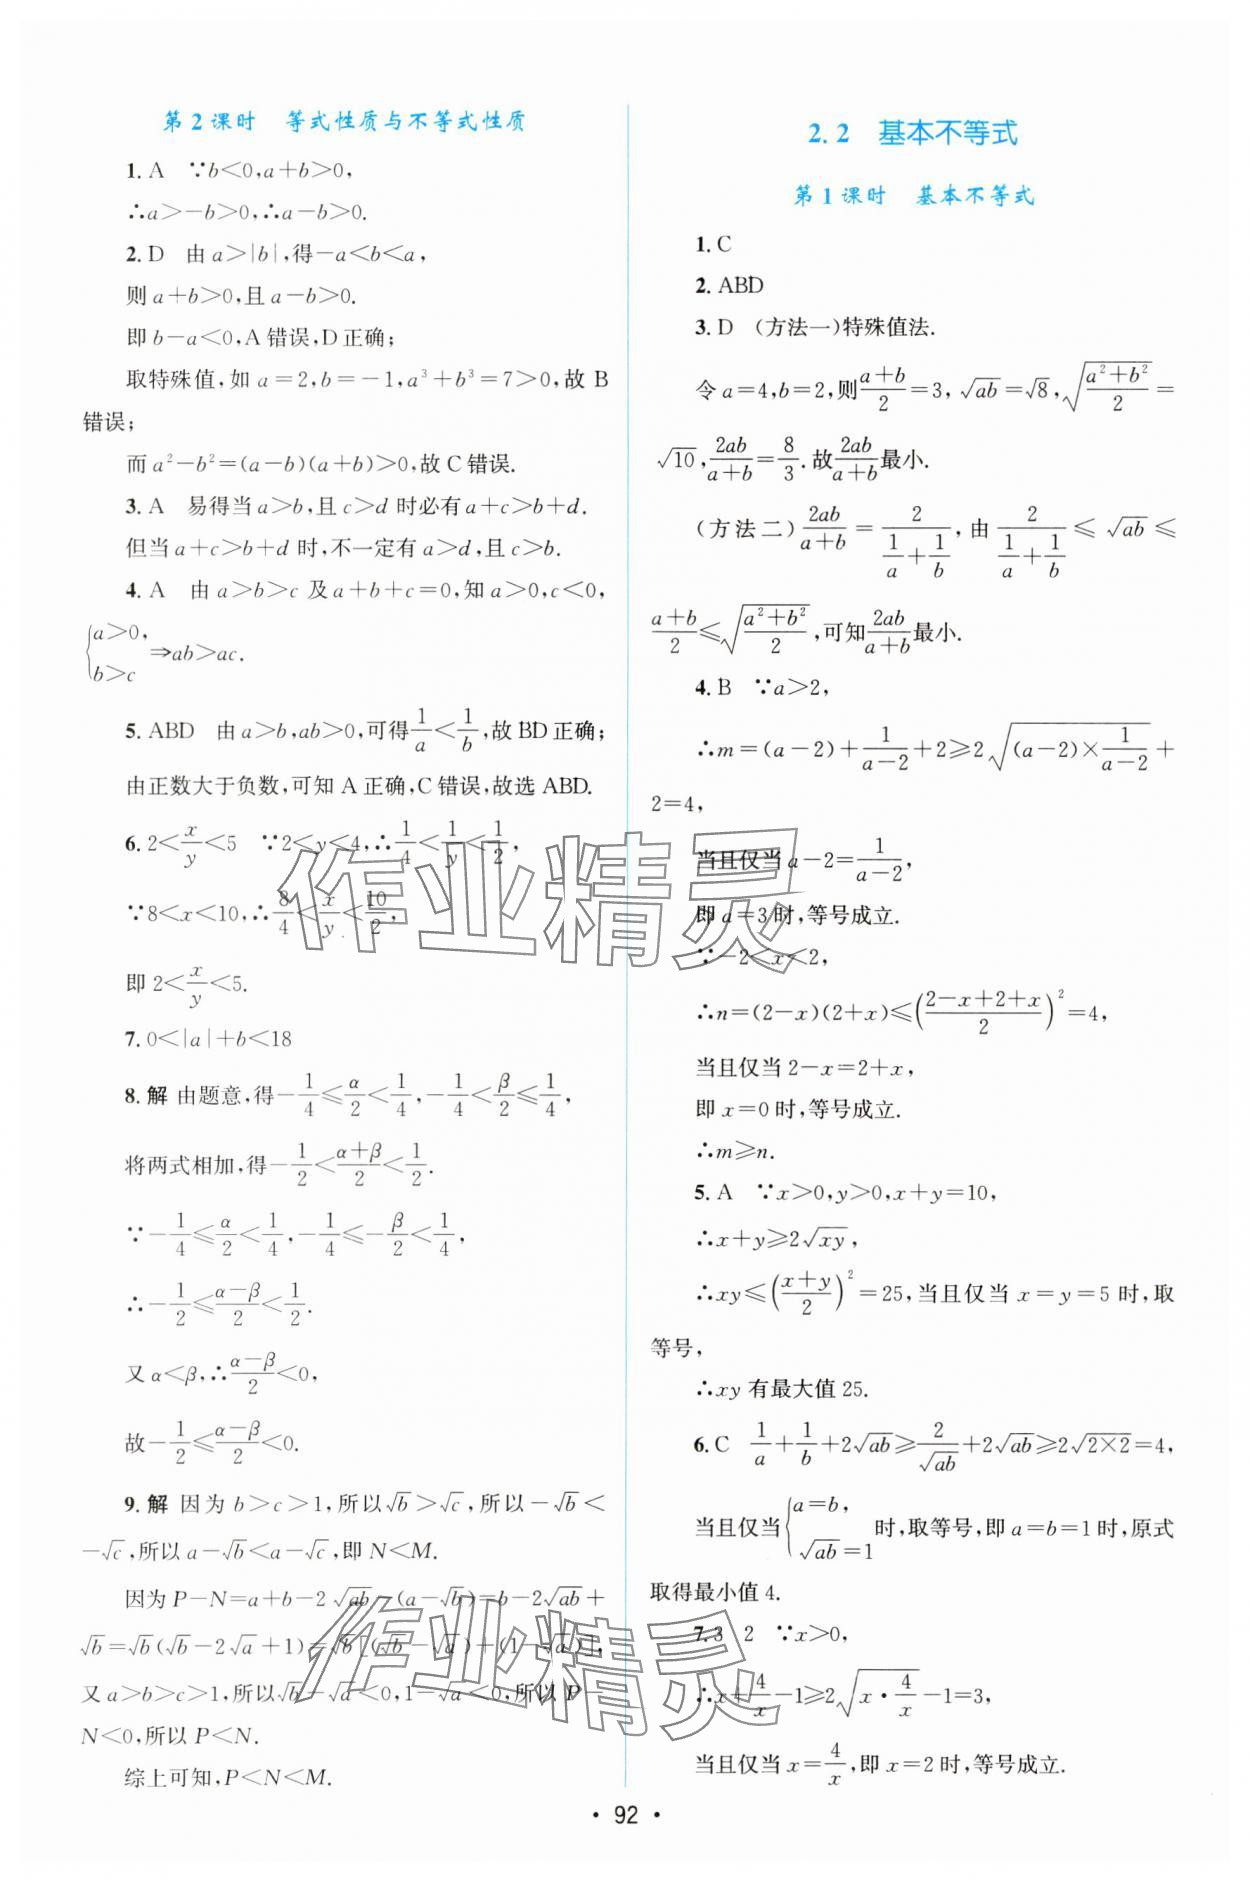 第2课时 等式性质与不等式性质
1. A ∵b<0,a+b>0,
∴a>-b>0,∴a-b>0.
2. D 由a>|b|,得-a<b<a,
则a+b>0,且a-b>0.
即b-a<0,A错误,D正确;
取特殊值,如a=2,b=-1,a³+b³=7>0,故B
错误;
而a²-b²=(a-b)(a+b)>0,故C错误.
3. A 易得当a>b,且c>d时必有a+c>b+d.
但当a+c>b+d时,不一定有a>d,且c>b.
4. A 由a>b>c及a+b+c=0,知a>0,c<0,
{a>0, b>c ⇒ab>ac.
5. ABD 由a>b,ab>0,可得1/a<1/b,故BD正确;
由正数大于负数,可知A正确,C错误,故选ABD.
6. 2<x/y<5 ∵2<y<4,∴1/4<1/y<1/2,
∵8<x<10,∴8/4<x/y<10/2,
即2<x/y<5.
7. 0<|a|+b<18
8. 解 由题意,得-1/4≤α/2<1/4,-1/4<β/2≤1/4,
将两式相加,得-1/2<(α+β)/2<1/2.
∵-1/4≤α/2<1/4,-1/4≤-β/2<1/4,
∴-1/2≤(α-β)/2<1/2.
又α<β,∴(α-β)/2<0,
故-1/2≤(α-β)/2<0.
9. 解 因为b>c>1,所以√b>√c,所以-√b<
-√c,所以a-√b<a-√c,即N<M.
因为P-N=a+b-2√ab-(a-√b)=b-2√ab+
√b=√b(√b-2√a+1)=√b[(√b-√a)+(1-√a)],
又a>b>c>1,所以√b-√a<0,1-√a<0,所以P-
N<0,所以P<N.
综上可知,P<N<M.
2.2 基本不等式
第1课时 基本不等式
1. C
2. ABD
3. D (方法一)特殊值法.
令a=4,b=2,则(a+b)/2=3,√ab=√8,√((a²+b²)/2)=
√10,2ab/(a+b)=8/3.故2ab/(a+b)最小.
(方法二)2ab/(a+b)=2/(1/a+1/b),由2/(1/a+1/b)≤√ab≤
(a+b)/2≤√((a²+b²)/2),可知2ab/(a+b)最小.
4. B ∵a>2,
∴m=(a-2)+1/(a-2)+2≥2√((a-2)×1/(a-2))+
2=4,
当且仅当a-2=1/(a-2),
即a=3时,等号成立.
∵-2<x<2,
∴n=(2-x)(2+x)≤((2-x+2+x)/2)²=4,
当且仅当2-x=2+x,
即x=0时,等号成立.
∴m≥n.
5. A ∵x>0,y>0,x+y=10,
∴x+y≥2√xy,
∴xy≤((x+y)/2)²=25,当且仅当x=y=5时,取
等号,
∴xy有最大值25.
6. C 1/a+1/b+2√ab≥2/√ab+2√ab≥2√(2×2)=4,
当且仅当{a=b, √ab=1 时,取等号,即a=b=1时,原式
取得最小值4.
7. 3 2 ∵x>0,
∴x+4/x-1≥2√(x·4/x)-1=3,
当且仅当x=4/x,即x=2时,等号成立.
· 92 ·
作业精灵
作业精灵